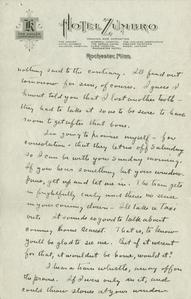 HOTEL ZUMBRO
Rochester, Minn.
nothing said to the contrary. I'll find out
tomorrow for sure, of course. I guess I
haven't told you that I lost another tooth -
they had to take it so as to be sure to have
room to get after that bone.
I'm going to promise myself - for
consolation - that they let me off Saturday
so I can be with you Sunday morning.
If you hear something but your window,
Jane, get up and let me in. The barn gets
so frightfully early and there's no use
in your coming down - I'll take a taxi
out. It sounds so good to talk about
coming home dearest. That is, to know
you'll be glad to see me. But if it weren't
for that, it wouldn't be home, would it?
I hear a train whistle, away off on
the prairie. If I were only on it, and
could throw stones at your window